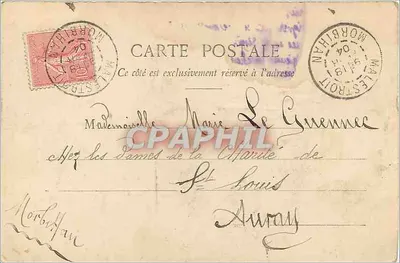 MALESTROIT
MORBIHAN
04
CARTE POSTALE
Ce côté est exclusivement réservé à l'adresse
MALESTROIT
MORBIHAN
04
Mademoiselle Marie Le Guennec
CPAPHIL
Chez les Dames de la Charité de
St Louis
Auray
Morbihan